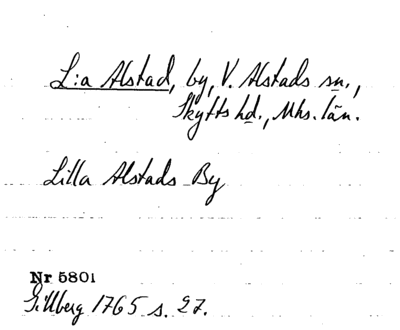 L:a Alstad, by, V. Alstads sn.,
Skytts hd., Mhs. län.
Lilla Alstads By
Nr 5801
Gillberg 1765 s. 27.